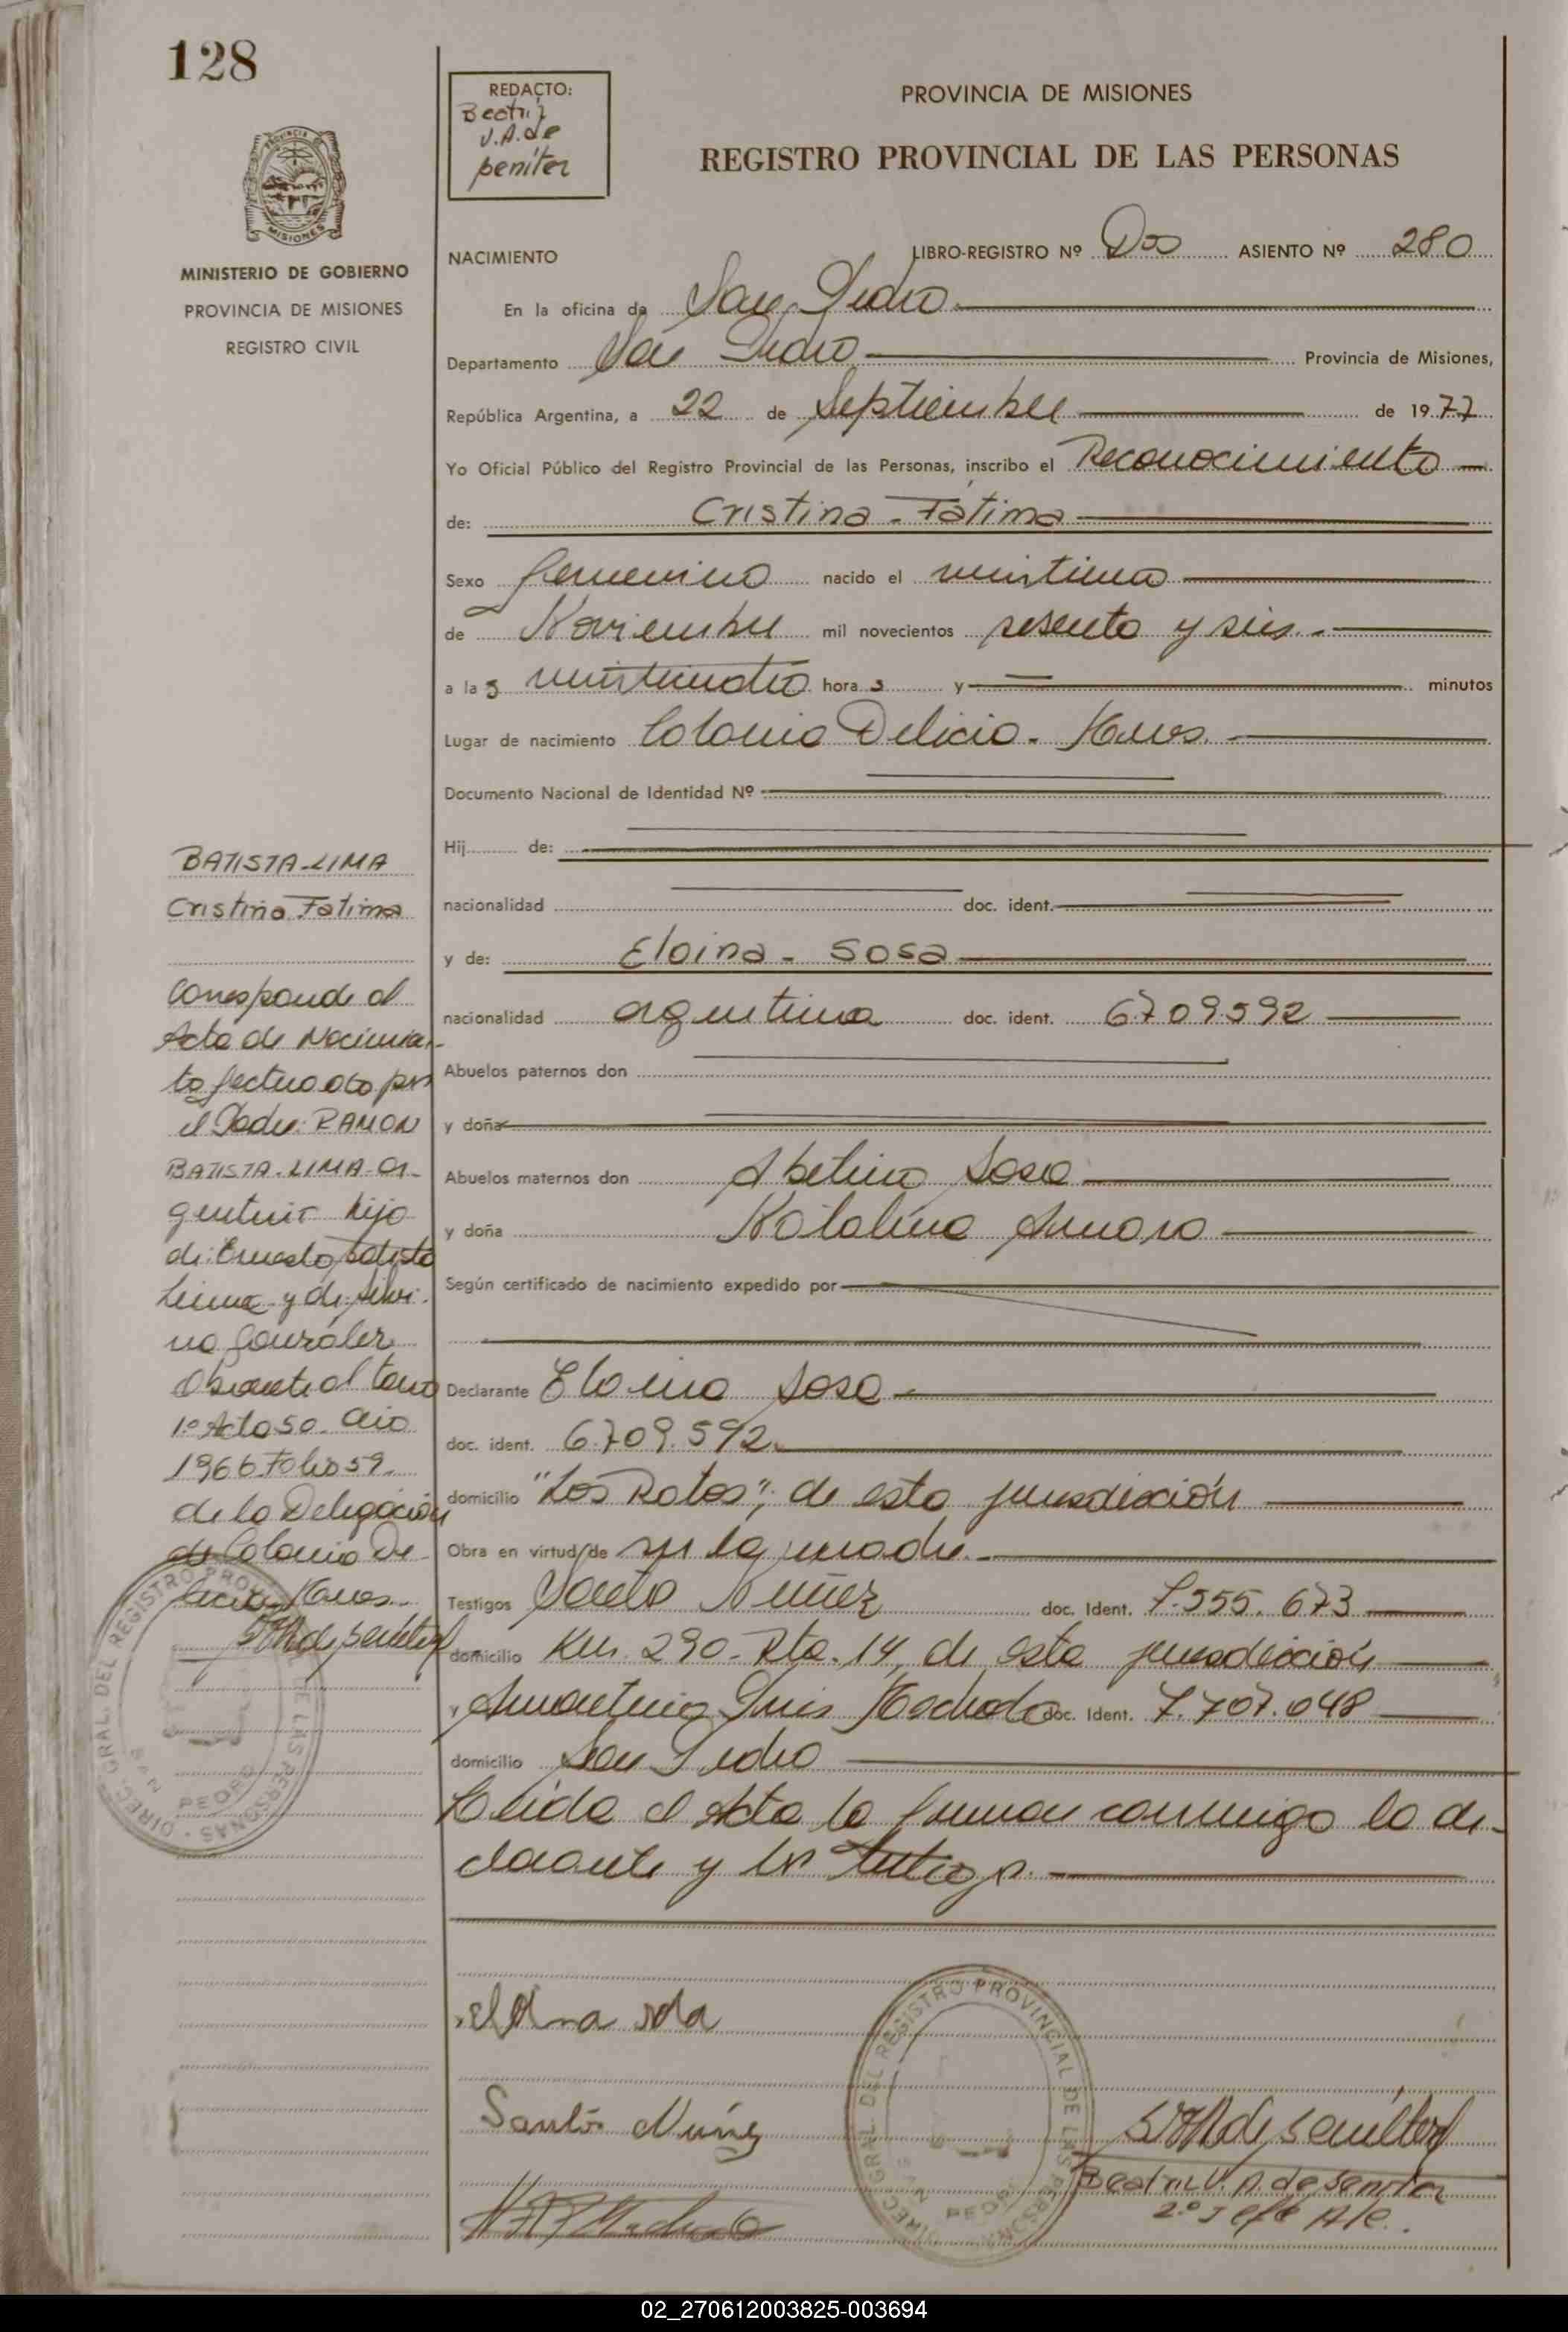 128
REDACTO:
Beatriz
V.A. de
PROVINCIA DE MISIONES
REGISTRO PROVINCIAL DE LAS PERSONAS
PROVINCIA
MISIONES
MINISTERIO DE GOBIERNO
PROVINCIA DE MISIONES
REGISTRO CIVIL
NACIMIENTO LIBRO-REGISTRO Nº Dos ASIENTO Nº 280
En la oficina de San Pedro
Departamento San Pedro Provincia de Misiones,
República Argentina, a 22 de Septiembre de 1977
Yo Oficial Público del Registro Provincial de las Personas, inscribo el Reconocimiento
de: Cristina - Fatima
Sexo femenino nacido el veintiuno
de Noviembre mil novecientos sesenta y seis.-
a las veinticuatro horas y = minutos
Lugar de nacimiento Colonia Delicia - Mnes.
Documento Nacional de Identidad Nº
Hij de:
nacionalidad doc. ident.
y de: Eloina - Sosa
nacionalidad argentina doc. ident. 6709592
Abuelos paternos don
y doña
Abuelos maternos don Abelino Sosa
y doña Natalina Amaro
Según certificado de nacimiento expedido por
Declarante Eloina Sosa
doc. ident. 6.709.592
domicilio "Los Ratos", de esta jurisdicción
Obra en virtud de ser la madre.-
Testigos Santo Nuñez doc. Ident. 7.555.673
domicilio Km. 290 - Rta. 14, de esta jurisdicción
y Luis Machado doc. Ident. 7.707.048
domicilio San Pedro
Leida el Acta la firman conmigo la de-
clarante y los testigos.
BATISTA-LIMA
Cristina Fatima
Corresponde al
Acta de Nacimien-
to fectuado por
el Padre: RAMON
BATISTA-LIMA-ar-
gentino hijo
de: Ernesto Batista
Lima y de Silvi-
na González
Obrante al tomo
1º Acta 50 - Año
1966 Folio 59.
de la Delegación
de Colonia De-
licia, Mnes.
DIREC. GRAL. DEL REGISTRO PROVINCIAL DE LAS PERSONAS
SAN PEDRO
Eloina Sosa
Santo Nuñez
Machado
DIREC. GRAL. DEL REGISTRO PROVINCIAL DE LAS PERSONAS
SAN PEDRO
Beatriz V. A. de
2º Jefe A/c.
02_270612003825-003694